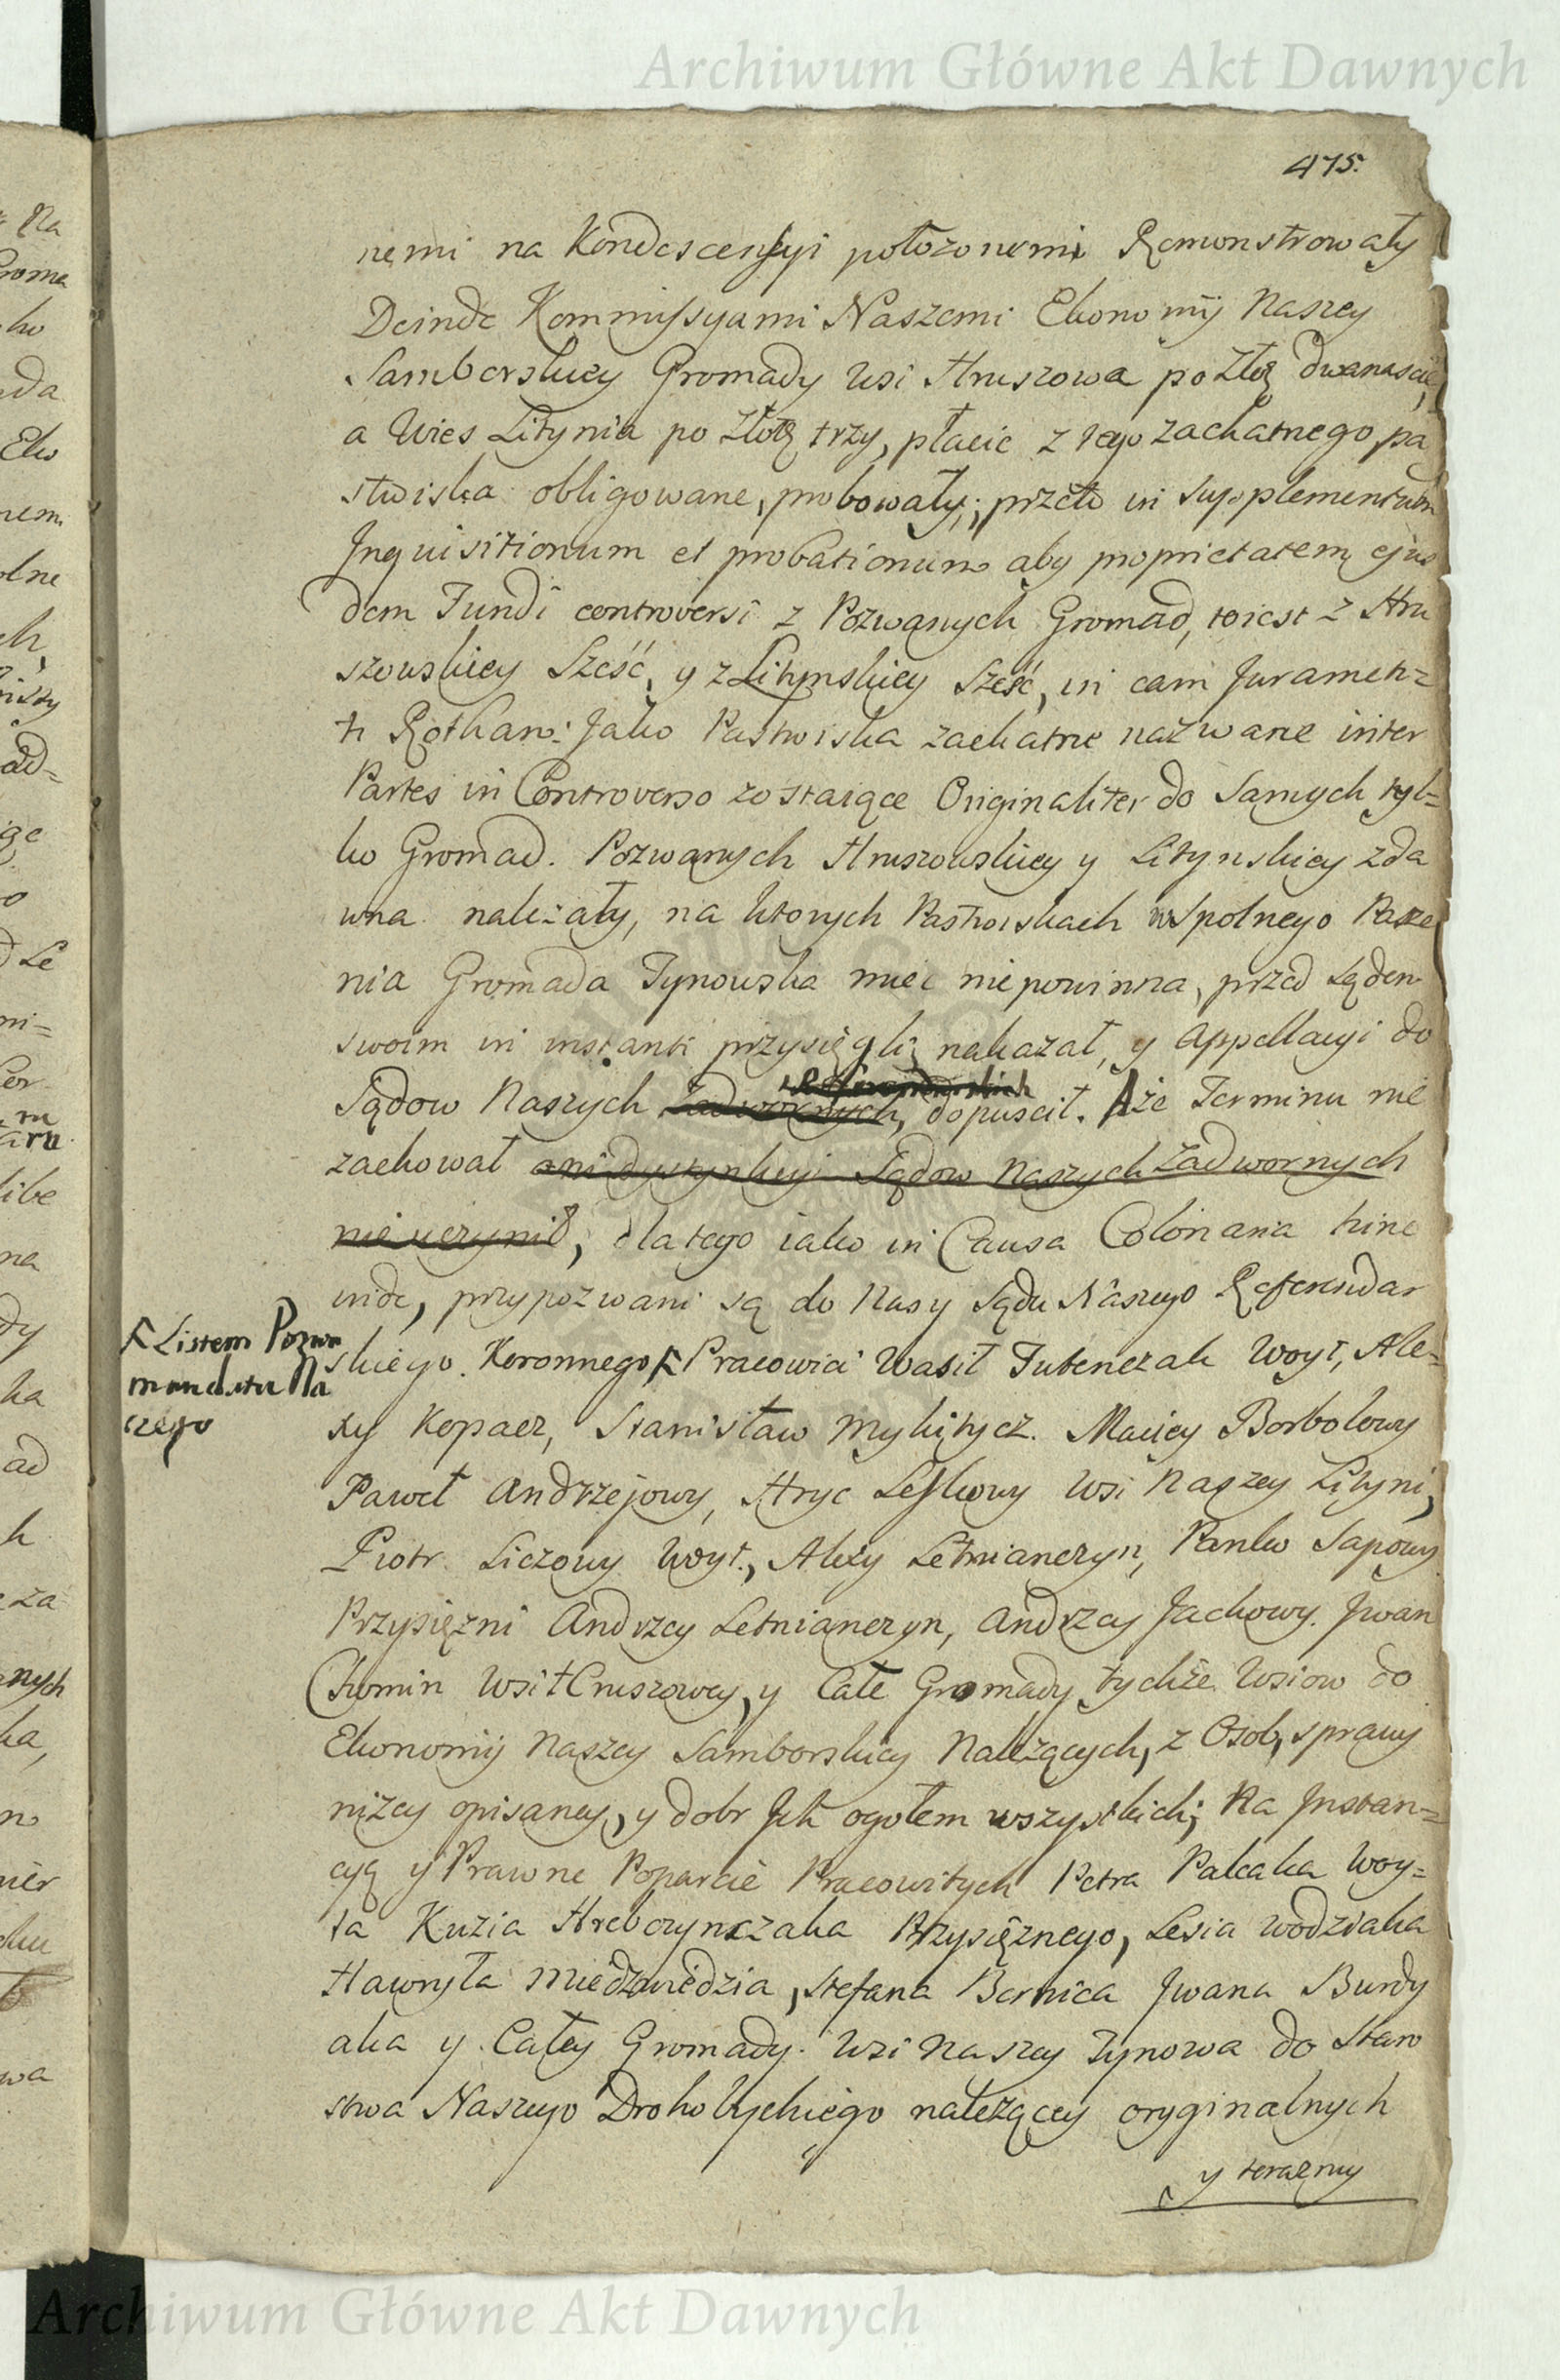 Archiwum Główne Akt Dawnych
475.
nemi na Kondescensyi położonemi Remonstrowały
Deinde Kommissyami Naszemi Ekonomij Naszey
Samborskiey Gromady Wsi Hruszowa po Złoŧ dwanascie,
a Wies Litynia po Złoŧ trzy, płacic z tego zachatnego pa
stwiska obligowane, probowały; przeto in supplementum
Inquisitionum et probationum aby proprietatem ejus
dem Fundi controversi z Pozwanych Gromad, toiest z Hru
szowskiey Sześć, y z Litynskiey Sześć, in eam Juramen=
ti Rotham: Jako Pastwiska zachatne nazwane inter
Partes in Controverso zostaiące Originaliter do Samych tyl=
ko Gromad. Pozwanych Hruszowskiey y Litynskiey zda
wna należały, na ktorych Pastwiskach wspolnego Pasze
nia Gromada Tynowska miec niepowinna, przed Sądem
swoim in instanti przysięgli, nakazał, y Appellacyi do
Referendarskich
Sądow Naszych Zadwornych, dopuscił. Aże Terminu nie
zachował ani dystynkcyi Sądow Naszych Zadwornych
nie uczynił, dlatego iako in Causa Colonaria hinc
inde, przypozwani są do Nas y Sądu Naszego Referendar
F Listem Pozwu
mandatu Na
szego
skiego. Koronnego F Pracowici Wasil Tutenczak Woyt, Ale=
xy Kopacz, Stanisław Mykitycz. Maciey Borbolowy
Paweł Andrzejowy, Hryc Leskowy Wsi Naszey Lityni,
Piotr Liczowy Woyt., Alexy Letnianczyn, Panko Sapowy
Przysięzni Andrzey Letnianczyn, Andrzey Jachowy. Jwan
Chomin Wsi Hruszowey, y Całe Gromady tychże Wsiow do
Ekonomij Naszey Samborskiey Należących, z Osob, sprawy
niżey opisaney, y dobr Jch ogołem wszystkich; Na Jnstan=
cyą y Prawne Poparcie Pracowitych Petra Palcaka Woy=
ta Kuzia Hreborynczaka Przysiężnego, Lesia Wodziaka
Hawryła Miedzwiedzia, Stefana Bernica Jwana Burdy
aka y Całey Gromady. Wsi Naszey Tynowa do Staro
stwa Naszego Drohobyckiego należącey oryginalnych
y teraźny
Archiwum Główne Akt Dawnych